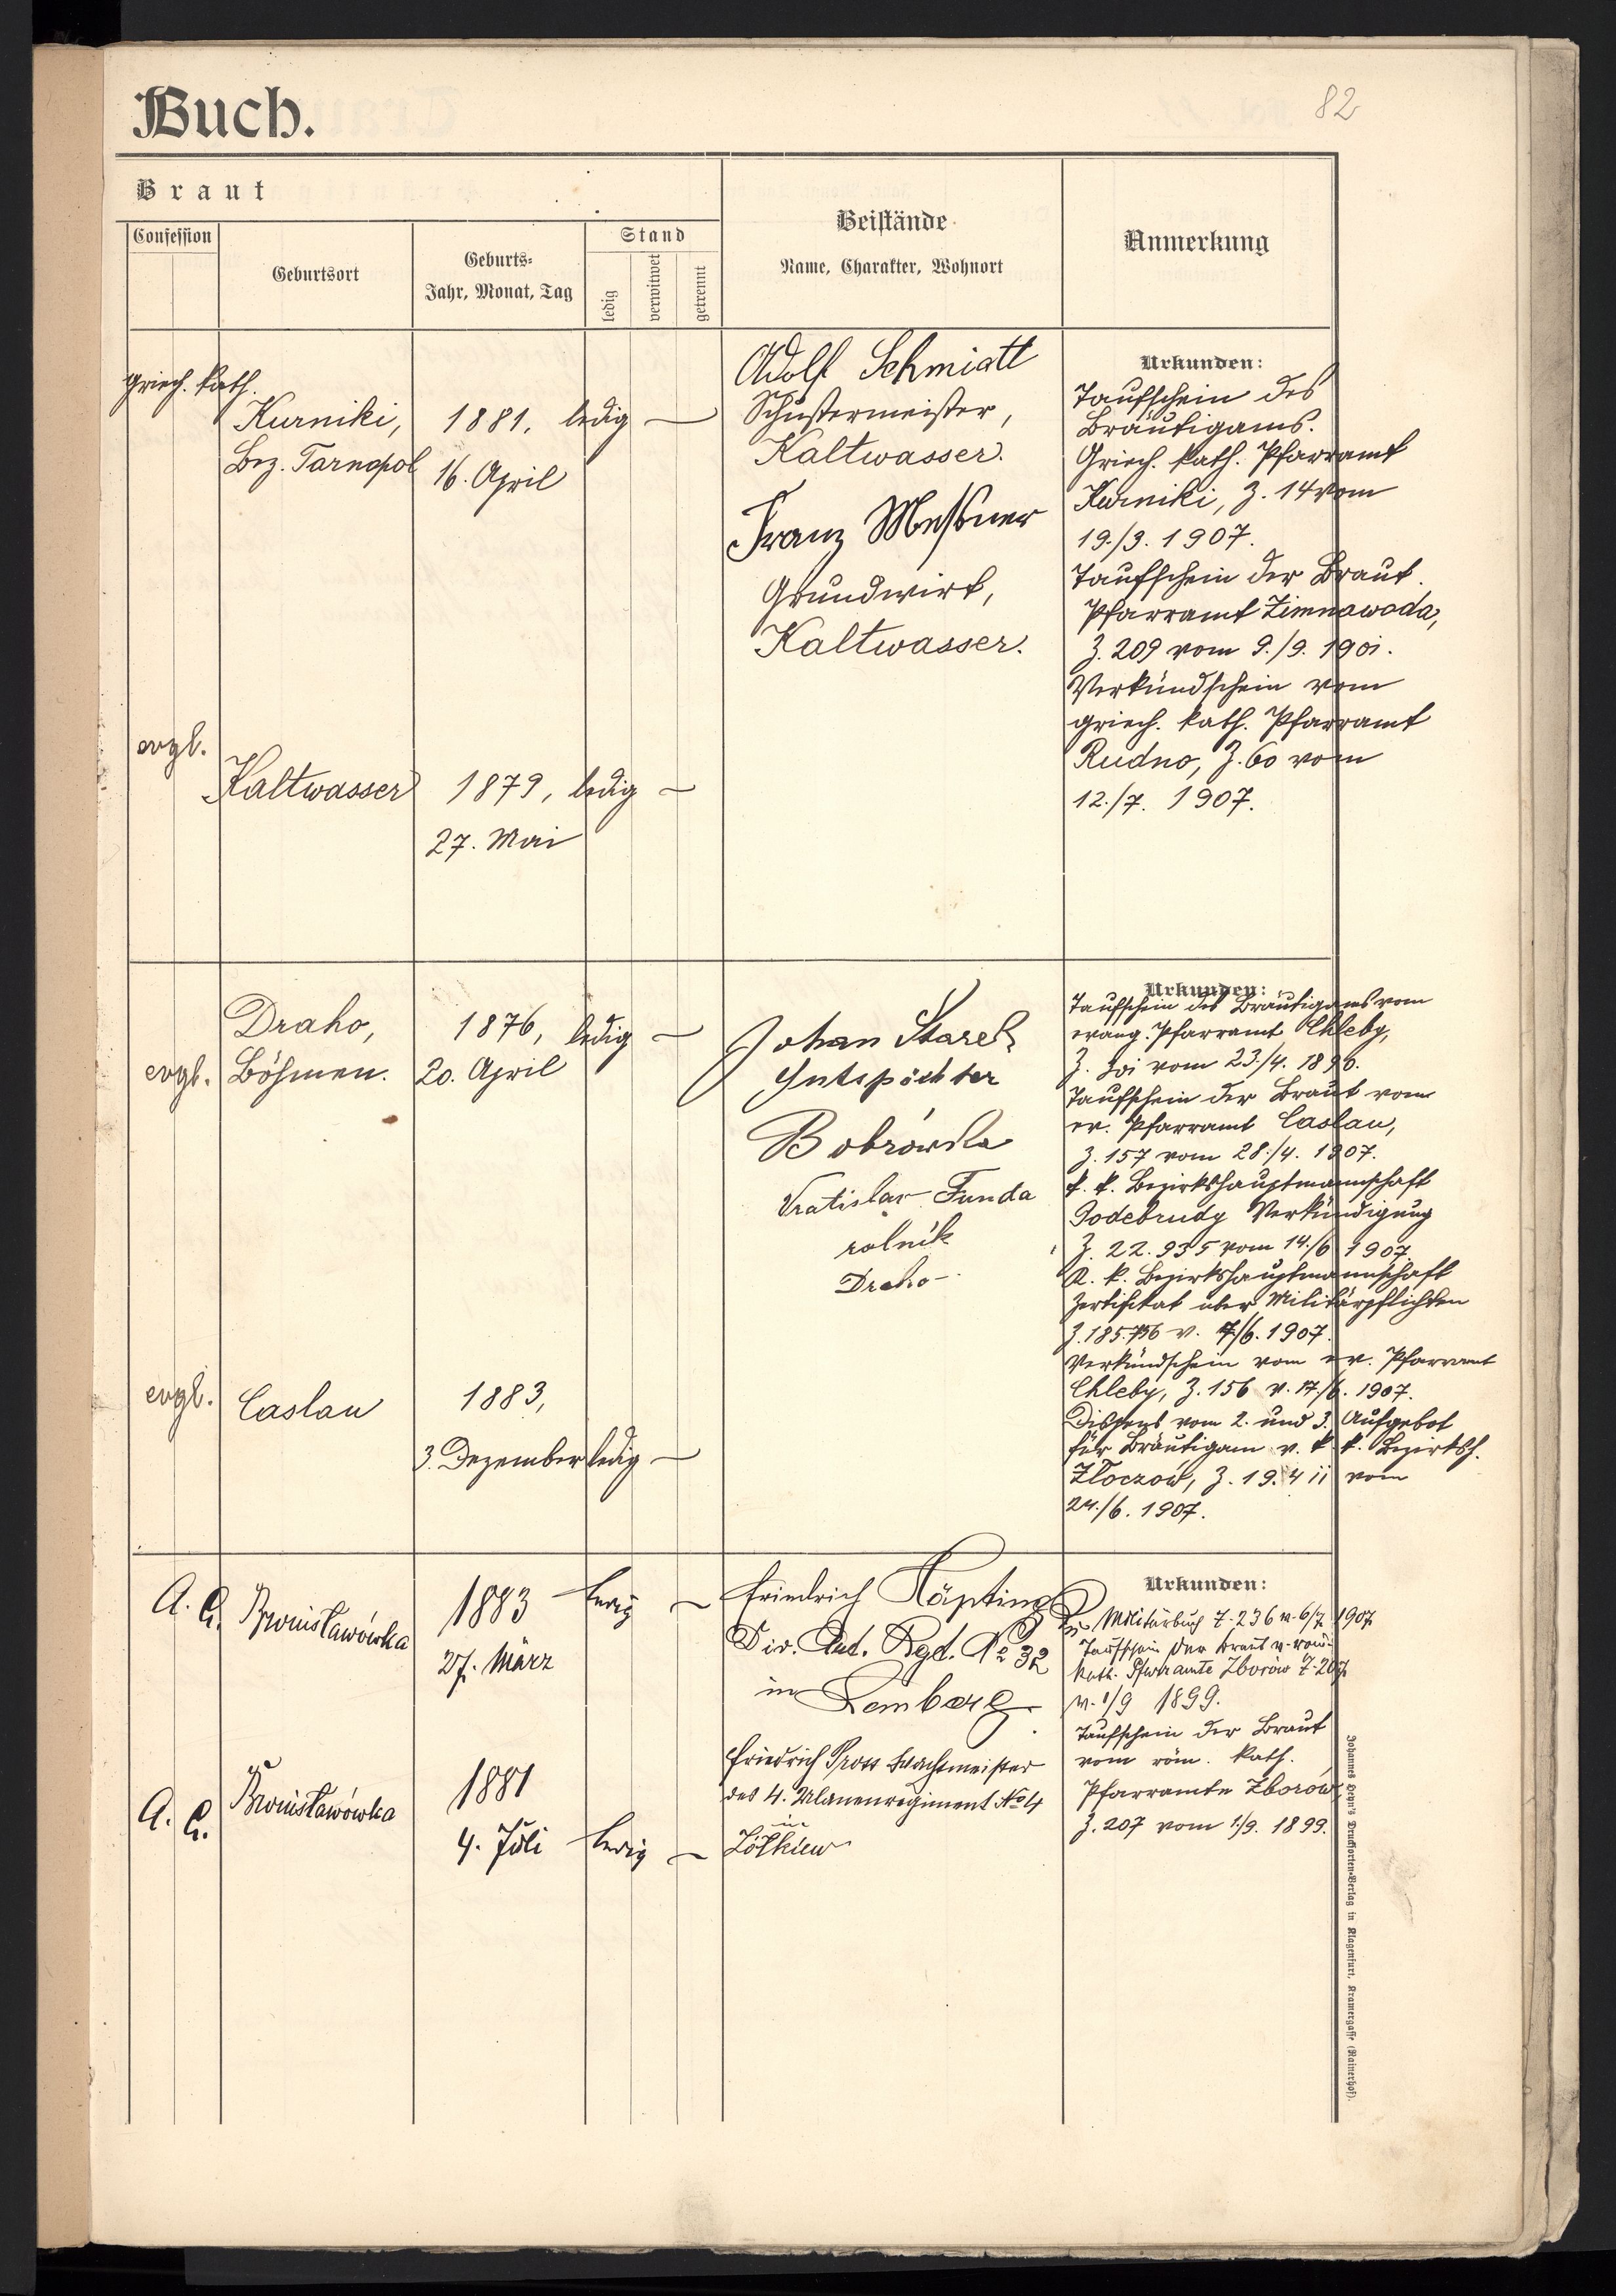 82
Buch.
Braut
Confession
Geburtsort
Geburts-
Jahr, Monat, Tag
Stand
ledig
verwitwet
getrennt
Beistände
Name, Charakter, Wohnort
Anmerkung
griech. kath.
Kurniki,
Bez. Tarnopol
1881,
16. April
ledig —
Adolf Schmidt
Schustermeister,
Kaltwasser.
Franz Meßner
Grundwirt,
Kaltwasser.
Urkunden:
Taufschein des
Bräutigams.
Griech. kath. Pfarramt
Kurniki, Z. 14 vom
19./3. 1907.
Taufschein der Braut.
Pfarramt Zimnawoda,
Z. 209 vom 9./9. 1901.
Verkündschein vom
griech. kath. Pfarramt
Rudno, Z. 60 vom
12./7. 1907.
evgl.
Kaltwasser
1879,
27. Mai
ledig —
evgl.
Draho,
Böhmen.
1876,
20. April
ledig —
Johan
Gutspächter
Bobrówka
Vratislav Funda
rolník
Draho
Urkunden:
Taufschein des Bräutigams vom
evang. Pfarramt Chleby,
Z. vom 23./4. 1896.
Taufschein der Braut vom
ev. Pfarramt Caslau,
Z. 157 vom 28./4. 1907.
k. k. Bezirkshauptmannschaft
Podebrady Verkündigung
Z. 22.935 vom 14./6 1907.
K. k. Bezirkshauptmannschaft
Zertifikat über Militärpflichten
Z. 185.756 v. 7/6. 1907.
Verkündschein vom ev. Pfarramt
Chleby, Z. 156 v. 17./6. 1907.
Dispens vom 2. und 3. Aufgebot
für Bräutigam v. k. k. Bezirksh.
Złoczów, Z. 19.411 vom
24./6. 1907.
evgl.
Caslau
1883,
3. Dezember
ledig —
A. C.
Bronisławówka
1883
27. März
ledig —
Friedrich
Div. Art. Rgt. No 32
in Lemberg
Urkunden:
Militärbuch Z. 236 v. 6/7 1907
Taufschein der Braut v. röm.
kath. Pfarramte Zborów Z. 207
v. 1/9 1899.
Taufschein der Braut
vom röm. kath.
Pfarramte Zborów,
Z. 207 vom 1./9. 1899.
A. C.
Bronisławówka
1881
4. Juli
ledig —
Friedrich Pross Wachtmeister
des 4. Ulanenregiment No 4
in
Żółkiew
Johannes Leon's Drucksorten-Verlag in Klagenfurt, Kramergasse (Rainerhof).